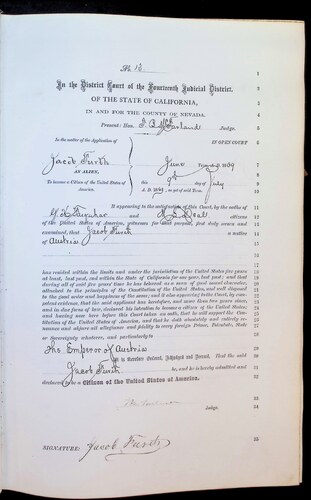 In the District Court of the Fourteenth Judicial District,
OF THE STATE OF CALIFORNIA,
IN AND FOR THE COUNTY OF NEVADA.
Present: Hon. Judge.
In the matter of the Application of
IN OPEN COURT
Jacob Furth
June
AN ALIEN,
To become a Citizen of the United States of
America.
9th day of July
A. D. 1869, of said Term.
It appearing to the satisfaction of this Court, by the oaths of
citizens
of the United States of America, witnesses for that purpose, first duly sworn and
examined, that Jacob Furth a native
of Austria
has resided within the limits and under the jurisdiction of the United States five years
at least, last past, and within the State of California for one year, last past; and that
during all of said five years' time he has behaved as a man of good moral character,
attached to the principles of the Constitution of the United States, and well disposed
to the good order and happiness of the same; and it also appearing to the Court, by com-
petent evidence, that the said applicant has heretofore, and more than two years since,
and in due form of law, declared his intention to become a citizen of the United States;
and having now here before this Court taken an oath, that he will support the Con-
stitution of the United States of America, and that he doth absolutely and entirely re-
nounce and abjure all allegiance and fidelity to every foreign Prince, Potentate, State
or Sovereignty whatever, and particularly to
The Emperor of Austria
It is therefore Ordered, Adjudged and Decreed, That the said
Jacob Furth be, and he is hereby admitted and
declared to be a Citizen of the United States of America.
Judge.
SIGNATURE: Jacob Furth
1
2
3
4
5
6
7
8
9
10
11
12
13
14
15